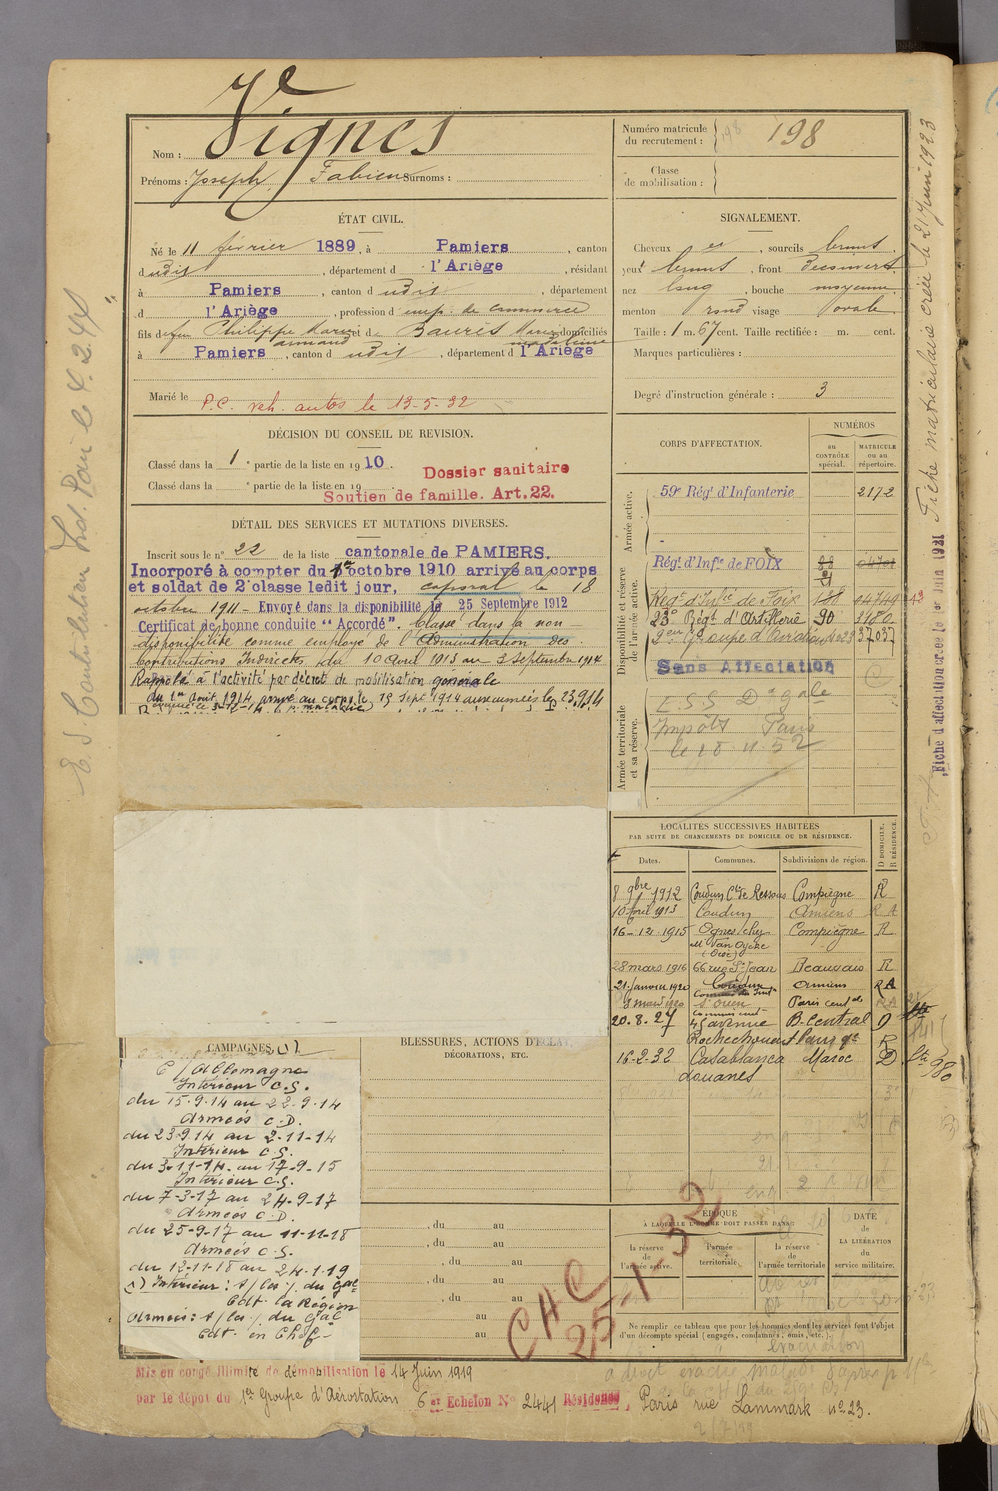 Vignes
Nom :
Prénoms : Joseph Fabien Surnoms :
ÉTAT CIVIL.
Né le 11 février 1889, à Pamiers, canton
dudit, département d l'Ariège, résidant
à Pamiers, canton d udit, département
d l'Ariège, profession d emp. de commerce
fils de feu Philippe Marie armand et de Baurès Marie madeleine domiciliés
à Pamiers, canton d udit, département d l'Ariège
Marié le
P.C. veh. autos le 13-5-32
DÉCISION DU CONSEIL DE REVISION.
Classé dans la 1e partie de la liste en 1910.
Classé dans la e partie de la liste en 19
Dossier sanitaire
Soutien de famille. Art. 22.
DÉTAIL DES SERVICES ET MUTATIONS DIVERSES.
Inscrit sous le n° 22 de la liste cantonale de PAMIERS.
Incorporé à compter du 1er octobre 1910 arrivé au corps
et soldat de 2e classe ledit jour, caporal le 18
octobre 1911 - Envoyé dans la disponibilité le 25 Septembre 1912
Certificat de bonne conduite "Accordé". Classé dans la non-
disponibilité comme employé de l'Administration des
Contributions Indirectes du 10 Avril 1913 au 3 Septembre 1914
Rappelé à l'activité par décret de mobilisation generale
du 1er Août 1914, arrivé au corps le 15 Sept 1914 aux armées le 23.9.14
CAMPAGNES
C/ Allemagne
Intérieur C.S.
du 15-9-14 au 22-9-14
Armées C.D.
du 23 9.14 au 2-11-14
Intérieur C.S.
du 3-11-14 au 17-9-15
Intérieur C.S.
du 7-3-17 au 24-9-17
Armées C.D.
du 25-9-17 au 11-11-18
Armées C.S.
du 12-11-18 au 24-1-19
Cdt la Région
Cdt en Chef
BLESSURES, ACTIONS D'ÉCLAT,
DÉCORATIONS, ETC.
, du au
, du au
, du au
, du au
, du au
au
au
CHC
25-1-32
Mis en congé illimité de démobilisation le 14 Juin 1919
par le dépot du 1er Groupe d'Aérostation 6e Echelon N° 2441 Résidence, Paris rue Lammark n° 23.
Numéro matricule
du recrutement : 198
Classe
de mobilisation :
SIGNALEMENT.
Cheveux et, sourcils bruns.
yeux bruns, front Découvert
nez long, bouche moyenne
menton rond visage ovale.
Taille : 1 m. 67 cent. Taille rectifiée : m. cent.
Marques particulières :
Degré d'instruction générale : 3
CORPS D'AFFECTATION.
NUMÉROS
au
CONTRÔLE
spécial.
MATRICULE
ou au
répertoire.
Armée active.
59e Régt d'Infanterie 2172
Disponibilité et réserve
de l'armée active.
Régt d'Infie de FOIX 88 21 04701
Regt d'Infie de Foix 188 04749
23e Régt d'Artillerie 90 3180
37037
Sans Affectation
Armée territoriale
et sa réserve.
Impôts Paris
le 18 11 52
LOCALITÉS SUCCESSIVES HABITÉES
PAR SUITE DE CHANGEMENTS DE DOMICILE OU DE RÉSIDENCE.
Dates. Communes. Subdivisions de région. D DOMICILE. R RÉSIDENCE.
8 9bre 1912 Coudun Cton de Ressons Compiègne R
10 Avril 1913 Coudun Amiens R A
16-12-1915 Compiègne R
(Oise)
28 mars 1916 66 rue St Jean Beauvais R
21 Janvier 1920 Coudun Amiens RA
8 mars 1920 St Ouen Paris central RA
20.8.27 45 avenue B. Central D
Rochechouart Paris 9e R
16-2-32 Casablanca Maroc D
douanes
ÉPOQUE
À LAQUELLE L'HOMME DOIT PASSER DANS :
la réserve
de
l'armée active.
l'armée
territoriale.
la réserve
de
l'armée territoriale
DATE
de
LA LIBÉRATION
du
service militaire.
Ne remplir ce tableau que pour les hommes dont les services font l'objet
d'un décompte spécial (engagés, condamnés, omis, etc.).
Fiche matriculaire créée le 21 Juin 1923
Fiche d'affectation créée le 1er Juin 1931